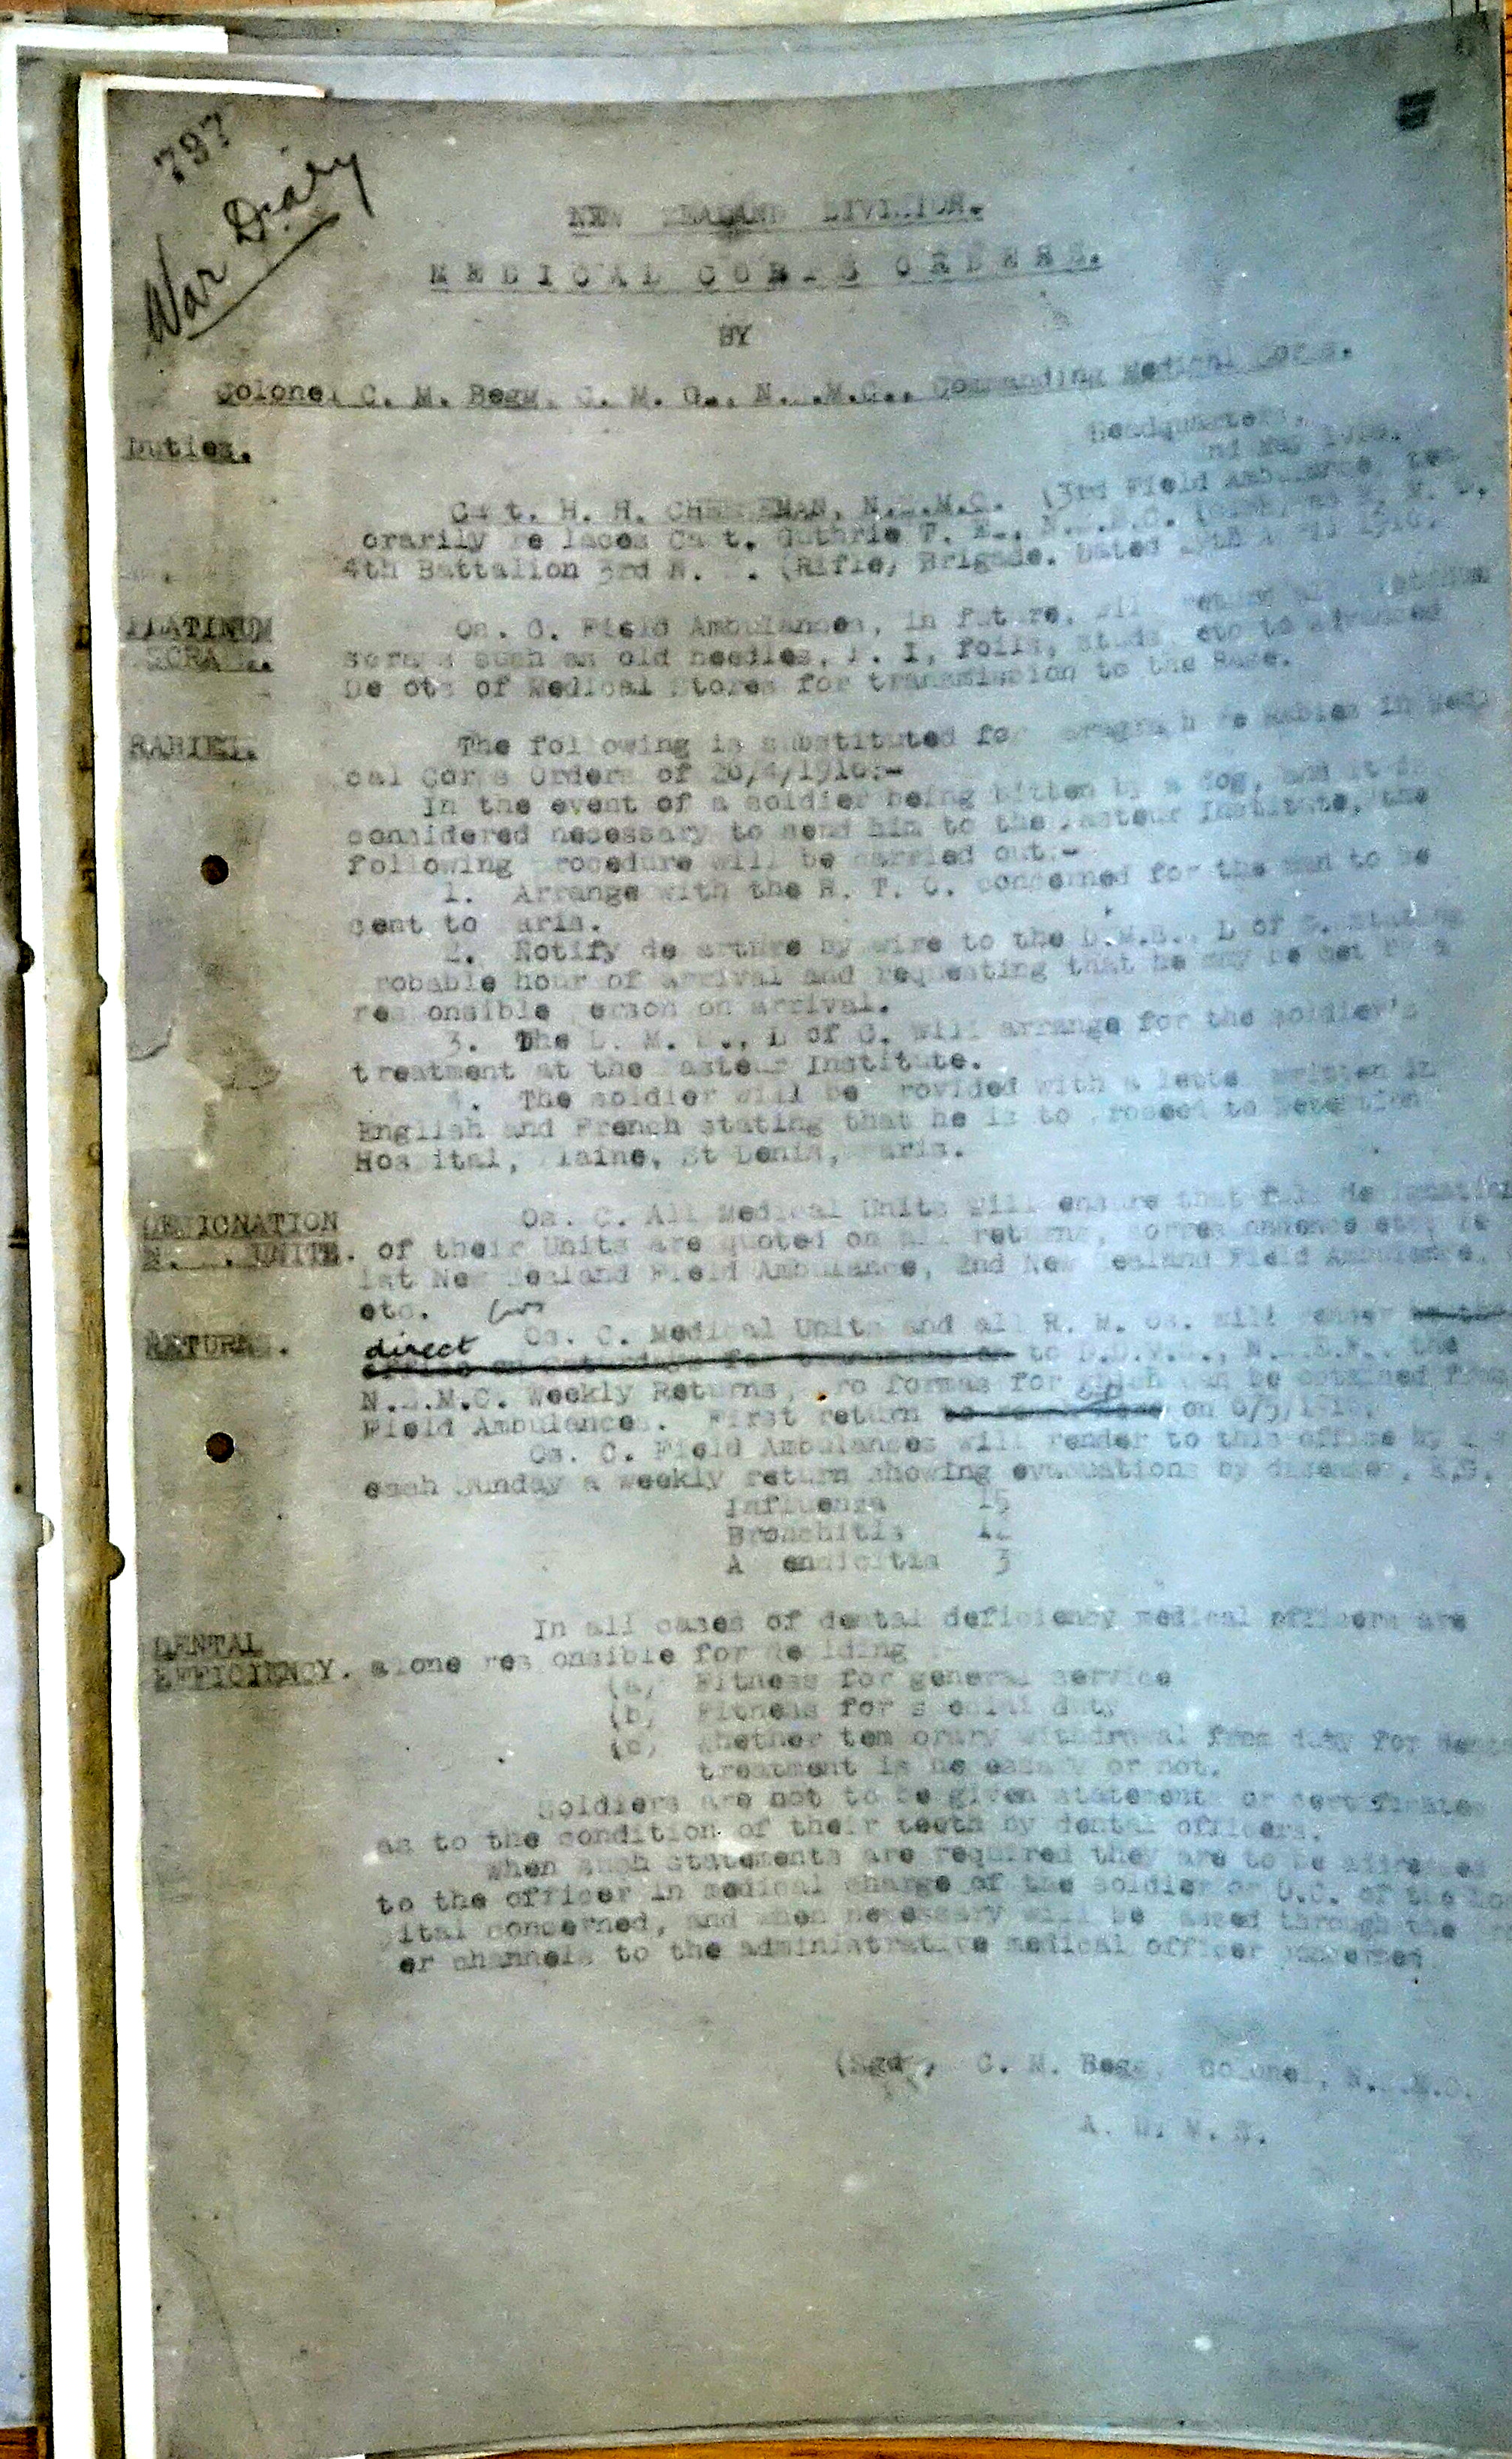 797
War Diary
NEW ZEALAND DIVISION.
MEDICAL CORPS ORDERS.
BY
Colonel C. M. Begg, C. M. G., N.Z.M.C., Commanding Medical Corps.
Headquarters,
May
Duties.
Capt. H. H. N.Z.M.C. (3rd Field Ambulance)
orarily replaces Capt. Guthrie N.Z.M.C.
4th Battalion 3rd N. Z. (Rifle) Brigade. Dated
PLATINUM
SCRAP.
Os. C. Field Ambulances, in future, will return
scraps such as old needles, P. I, foils, studs, etc to Advanced
Depots of Medical Stores for transmission to the Base.
RABIES.
The following is substituted for paragraph re Rabies in Medi
cal Corps Orders of
In the event of a soldier being bitten by a dog, and it is
considered necessary to send him to the Pasteur Institute, the
following procedure will be carried out:-
1. Arrange with the R. T. O. concerned for the man to be
sent to Paris.
2. Notify departure by wire to the D.M.S., L of C. stating
probable hour of arrival and requesting that he may be met by a
responsible person on arrival.
3. The D. M. S., L of C. will arrange for the soldier's
treatment at the Pasteur Institute.
4. The soldier will be provided with a letter written in
English and French stating that he is to proceed to Detention
Hospital, Plaine, St Denis, Paris.
DESIGNATION
N. Z. UNITS.
Os. C. All Medical Units will ensure that full designation
of their Units are quoted on all returns, correspondence etc, ie
1st New Zealand Field Ambulance, 2nd New Zealand Field Ambulance,
etc.
RETURNS.
Os. C. Medical Units and all R. M. Os. will render
direct
to D.D.M.S., N.Z.E.F., the
N.Z.M.C. Weekly Returns, pro formas for which can be obtained from
Field Ambulances. First return on
Os. C. Field Ambulances will render to this office by
each Sunday a weekly return showing evacuations by diseases, E.G.
Influenza 15
Bronchitis
Appendicitis 3
DENTAL
EFFICIENCY.
In all cases of dental deficiency medical officers are
alone responsible for deciding
(a) Fitness for general service
(b) Fitness for special duty
(c) Whether temporary withdrawal from duty for
treatment is necessary or not.
Soldiers are not to be given statements or certificates
as to the condition of their teeth by dental officers.
When such statements are required they are to be addressed
to the officer in medical charge of the soldier or O.C. of the Hos
pital concerned, and when necessary will be passed through the
er channels to the administrative medical officer concerned
(Sgd) C. M. Begg, Colonel, N.Z.M.C.
A. D. M. S.